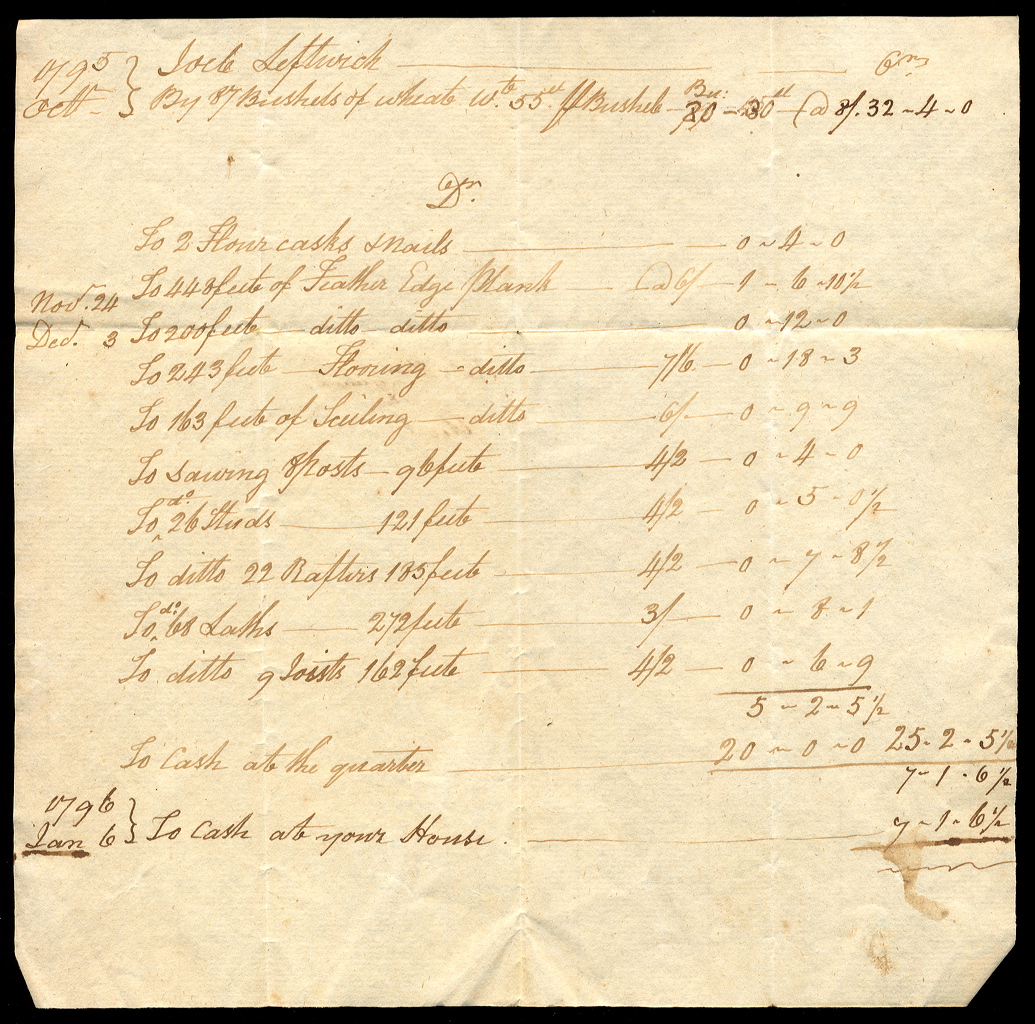 1795 } Joel Leftwich — — Cr
Octr } By 87 Bushels of wheat Wt. 55 lb ⅌ Bushel — Bu: 80 – 30 lb — @ 8/. 32 ~ 4 ~ 0
Dr.
To 2 Flour casks & nails — 0 ~ 4 ~ 0
Novr. 24 To 448 feet of Feather Edge Plank — @ 6/ — 1 ~ 6 ~ 10½
Decr. 3 To 200 feet — ditto — ditto — 0 ~ 12 ~ 0
To 243 feet — Flooring — ditto — 7/6 — 0 ~ 18 ~ 3
To 163 feet of Seiling — ditto — 6/ — 0 ~ 9 ~ 9
To sawing 8 Posts — 96 feet — 4/2 — 0 ~ 4 ~ 0
To do. 26 Studs — 121 feet — 4/2 — 0 ~ 5 ~ 0½
To ditto 22 Rafters 185 feet — 4/2 — 0 ~ 7 ~ 8½
To do. 68 Laths — 272 feet — 3/ — 0 ~ 8 ~ 1
To ditto 9 Joists 162 feet — 4/2 — 0 ~ 6 ~ 9
5 ~ 2 ~ 5½
To Cash at the quarter — 20 ~ 0 ~ 0 25 ~ 2 ~ 5½
7 ~ 1 ~ 6½
1796 } 
Jan 6 } To Cash at your House. — 7 ~ 1 ~ 6½